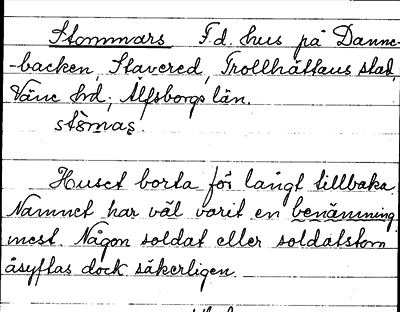 Stommars F.d. hus på Danne-
-backen, Stavered, Trollhättans stad,
Väne hrd; Älfsborgs län.
stömas.
Huset borta för långt tillbaka.
Namnet har väl varit en benämning
mest. Någon soldat eller soldatstom
åsyftas dock säkerligen.